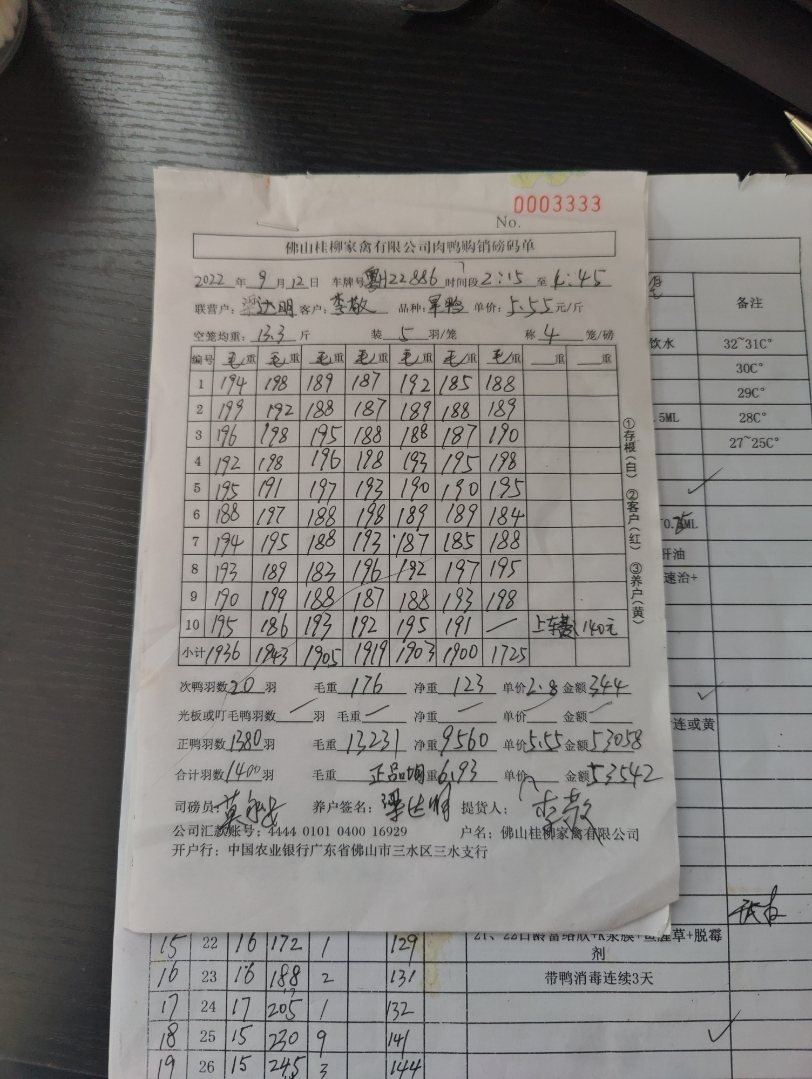 0003333
No.
佛山桂柳家禽有限公司肉鸭购销磅码单
2022 年 9 月 12 日 车牌号 粤H22886 时间段 2:15 至 6:45
联营户: 梁达明 客户: 李敬 品种: 单价: 5.55 元/斤
空笼均重: 13.3 斤 装 5 羽/笼 称 4 笼/磅
编号 毛重 毛重 毛重 毛重 毛重 毛重 毛重 重 重
1 194 198 189 187 192 185 188
2 199 192 188 187 189 188 189
3 196 198 195 188 188 187 190
4 192 198 196 198 193 195 198
5 195 191 197 193 190 190 195
6 188 197 188 198 189 189 184
7 194 195 188 193 187 185 188
8 193 189 183 196 192 197 195
9 190 199 188 187 188 193 198
10 195 186 193 192 195 191 — 上车费: 140元
小计 1936 1943 1905 1919 1903 1900 1725
①存根(白) ②客户(红) ③养户(黄)
次鸭羽数 20 羽 毛重 176 净重 123 单价 2.8 金额 344
光板或叮毛鸭羽数 羽 毛重 净重 单价 金额
正鸭羽数 1380 羽 毛重 13231 净重 9560 单价 5.55 金额 53058
合计羽数 1400 羽 毛重 正品均重 6.93 单价 金额 53542
司磅员: 养户签名: 梁达明 提货人: 李敬
公司汇款账号: 4444 0101 0400 16929 户名: 佛山桂柳家禽有限公司
开户行: 中国农业银行广东省佛山市三水区三水支行
备注
饮水 32~31C°
30C°
29C°
.5ML 28C°
27~25C°
肝油
速治+
连或黄
15 22 16 172 1 129
剂
16 23 16 188 2 131 带鸭消毒连续3天
17 24 17 205 1 132
18 25 15 230 9 141
19 26 15 245 3 144